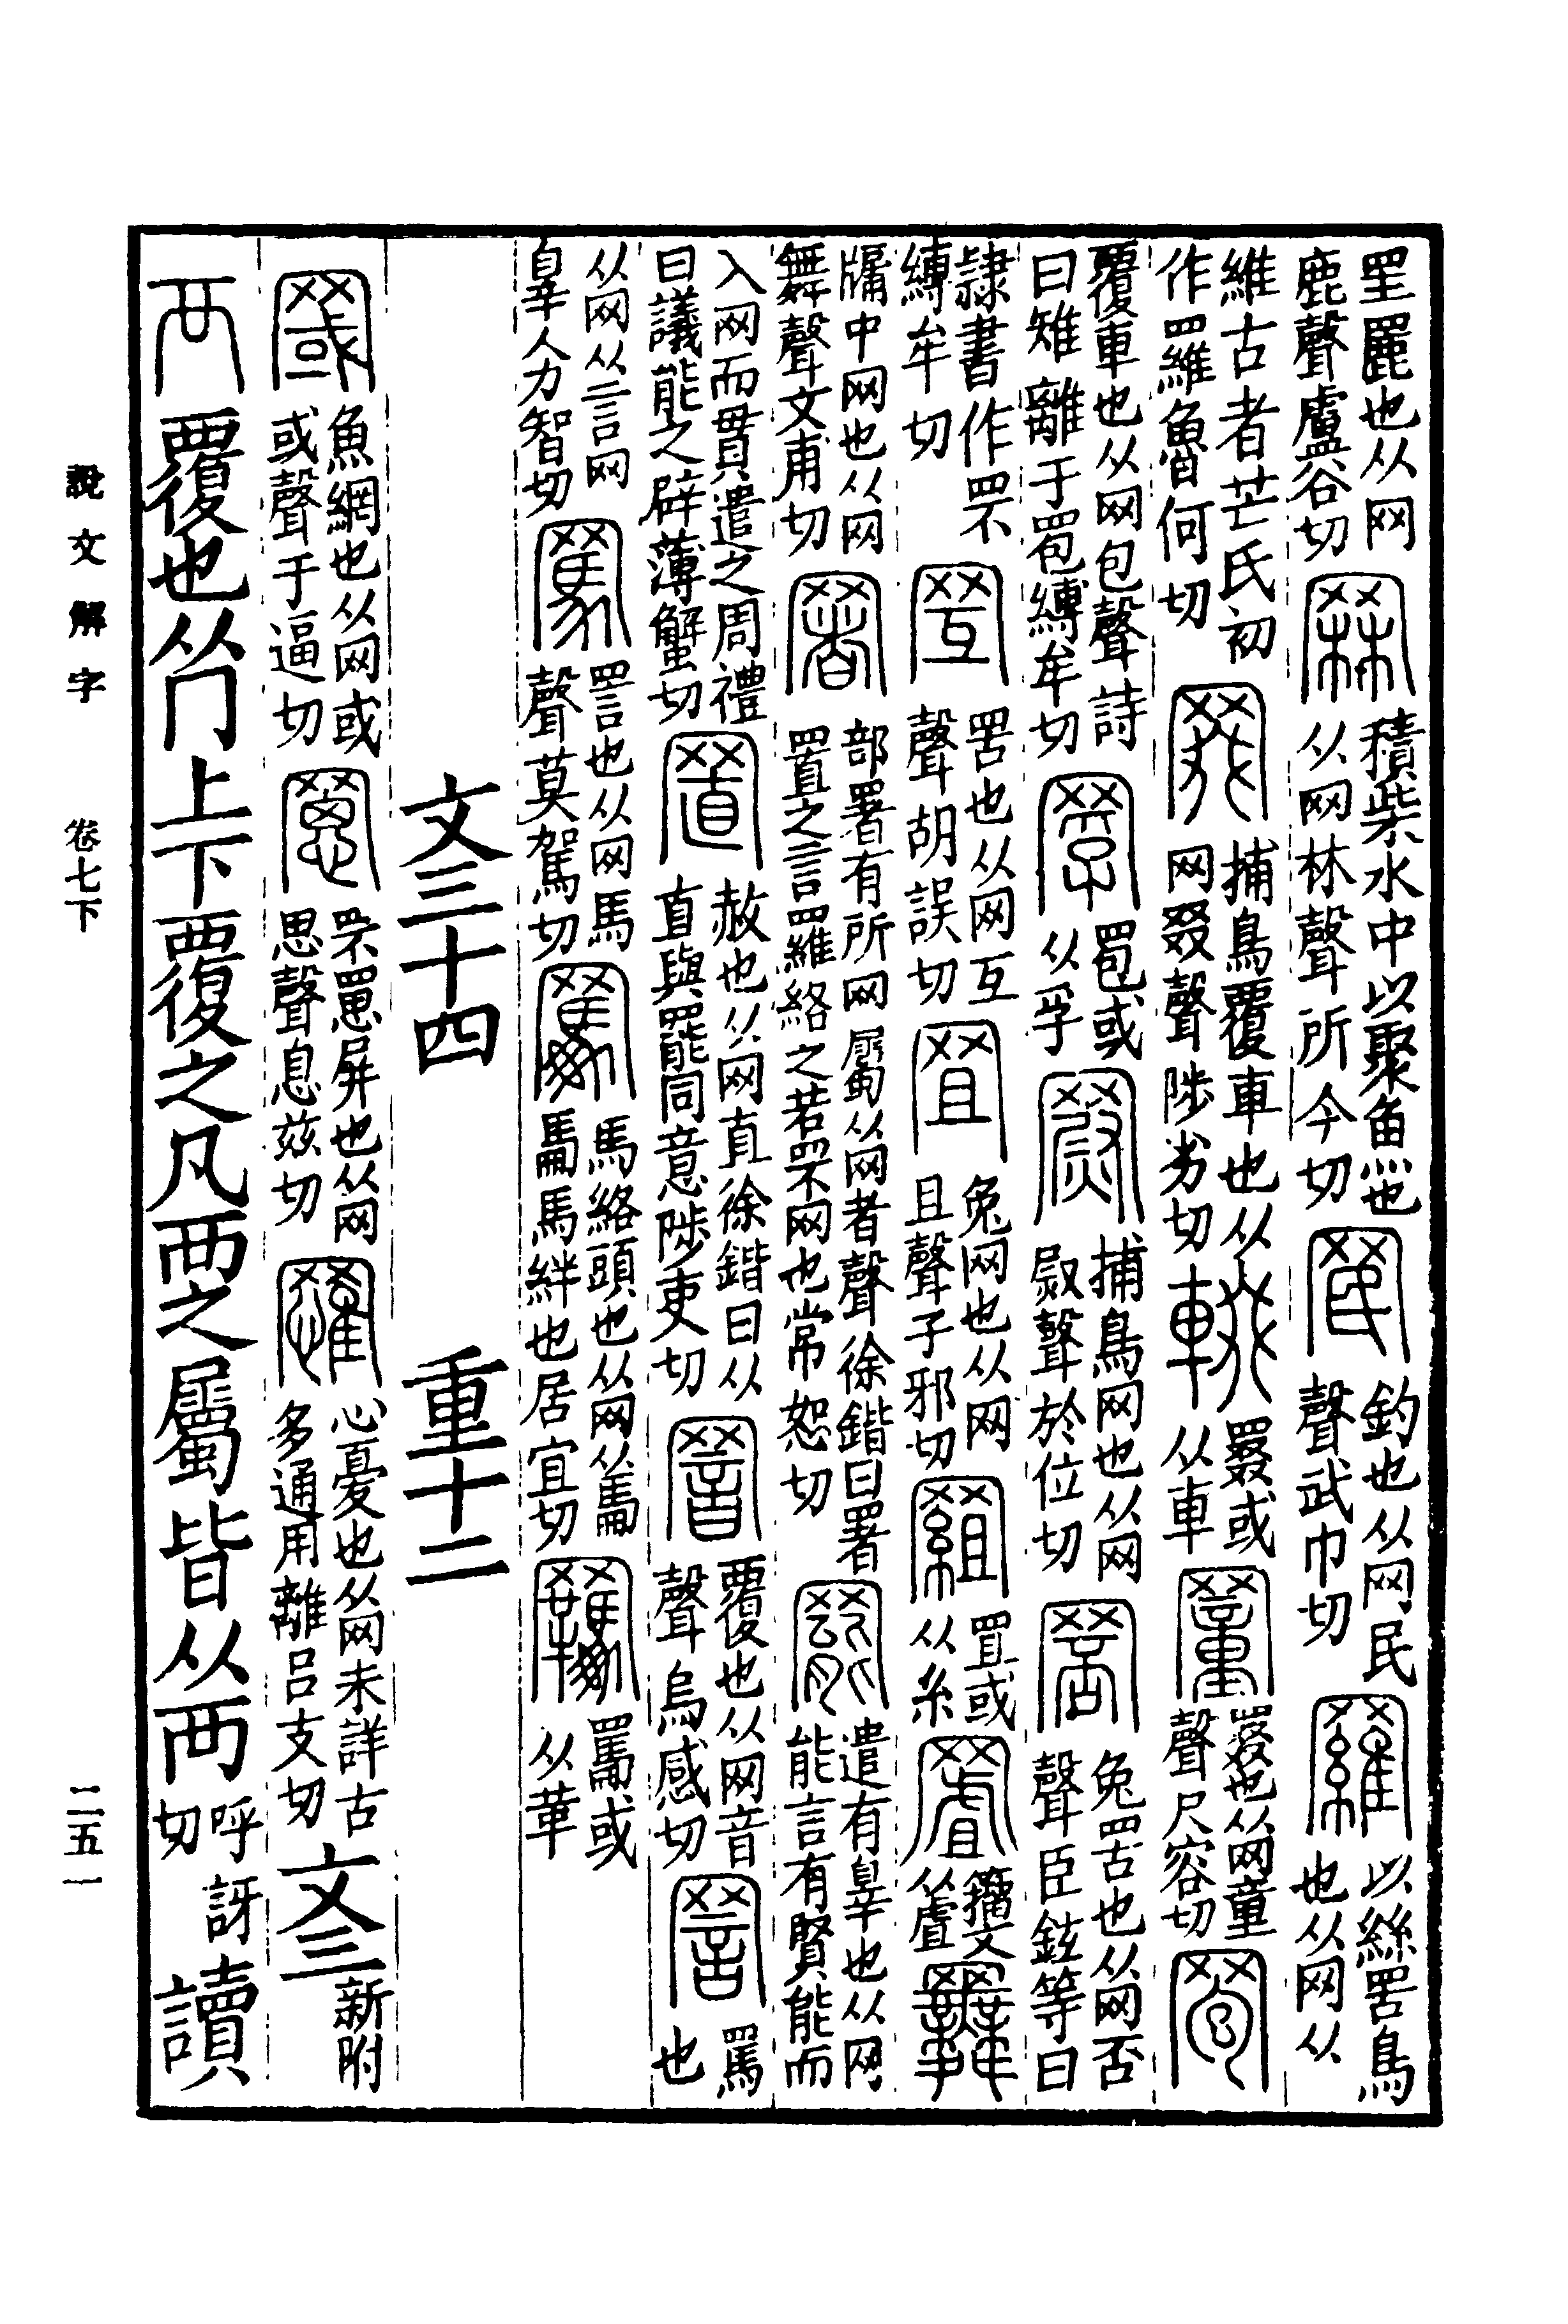 罜䍡也从网鹿聲盧谷切 罧 積柴水中以聚魚也从网林聲所今切 罠 釣也从网民聲武巾切 羅 以絲罟鳥也从网从
維古者芒氏初作羅魯何切 罬 捕鳥覆車也从网叕聲陟劣切 輟 罬或从車 罿 罬也从网童聲尺容切 𦉾
覆車也从网包聲詩曰雉離于𦉾縛牟切 罦 𦉾或从孚 罻 捕鳥网也从网𡰥聲於位切 䍖 兔罟也从网否聲臣鉉等曰
隷書作罘縛牟切 罟 罟也从网互聲胡誤切 罝 兔网也从网且聲子邪切 𦌀 罝或从糸 𦋽 籒文从虘 𦌬
牖中网也从网舞聲文甫切 署 部署有所网屬从网者聲徐鍇曰署置之言羅絡之若罘网也常恕切 罷 遣有辠也从网能言有賢能而
入网而貫遣之周禮曰議能之辟薄蟹切 置 赦也从网直徐鍇曰从直與罷同意陟吏切 罯 覆也从网音聲烏感切 詈 罵也
从网从言网辠人力智切 罵 詈也从网馬聲莫駕切 𦌭 馬絡頭也从网从馽馽馬絆也居宜切 羈 𦌭或从革
文三十四 重十二
罭 魚網也从网或或聲于逼切 罳 罘罳屏也从网思聲息兹切 罹 心憂也从网未詳古多通用離呂支切 文三新附
襾 覆也从冂上下覆之凡襾之屬皆从襾呼訝切 讀
說文解字 卷七下 二五一